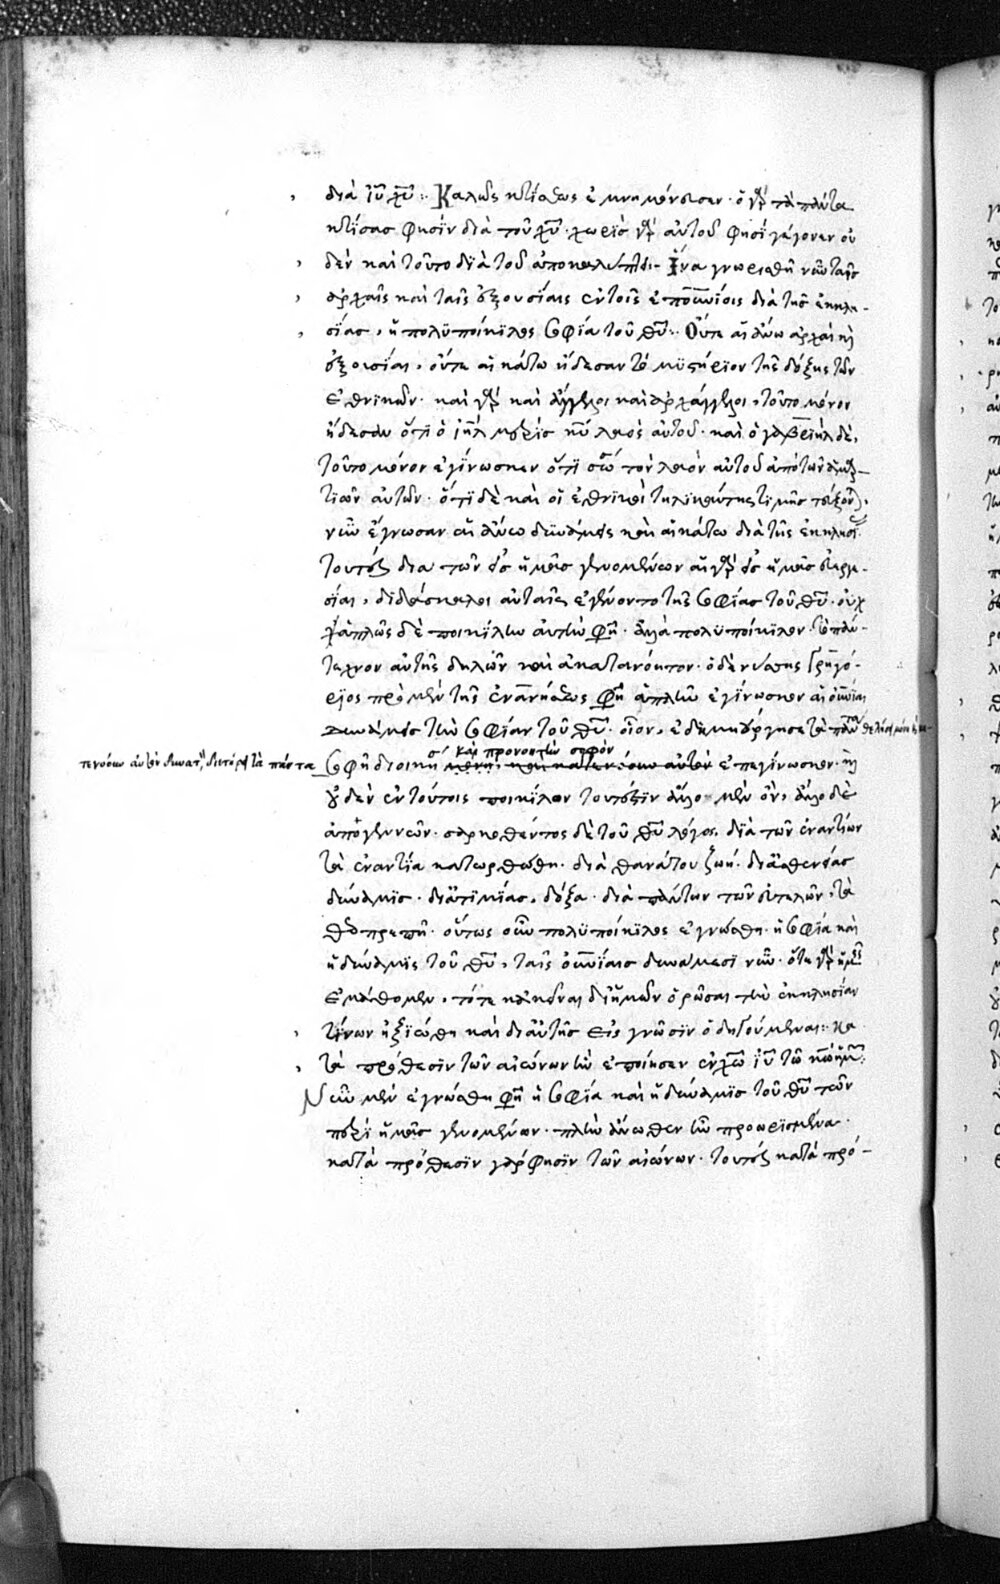 διὰ ἰῦ χῦ:· Καλῶς κτίσεως ἐμνημόνευσεν· ὁ γὰρ τὰ πάντα
κτίσας φησὶν διὰ τοῦ χῦ· χωρὶς γὰρ αὐτοῦ φησὶ γέγονεν οὐ
δέν καὶ τοῦτο διὰ τοῦ ἀποκαλύπτει- Ἵνα γνωρισθῆ νῦν ταῖς
ἀρχαῖς καὶ ταῖς ἐξουσίαις ἐν τοῖς ἐπουνίοις διὰ τῆς ἐκκλη-
σίας, ἡ πολυποίκιλος σοφία τοῦ θῦ:· Οὔτε αἱ ἄνω ἀρχαὶ κὶ
ἐξουσίαι, οὔτε αἱ κάτω ἤδεσαν τὸ μυστήριον τῆς δόξης τῶν
ἐθνικῶν· καὶ γὰρ καὶ ἄγγελοι καὶ ἀρχάγγελοι, τοῦτο μόνον
ἤδεσαν ὅτι ὁ ἰηλ μερὶς κῦ λαὸς αὐτοῦ· καὶ ὁ γαβριὴλ δὲ,
τοῦτο μόνον ἐγίνωσκεν ὅτι σώσει τὸν λαὸν αὐτοῦ ἀπὸ τῶν ἁμαρ-
τιῶν αὐτῶν· ὅτι δὲ καὶ οἱ ἐθνικοὶ τηλικαύτης τιμῆς τεύξονται,
νῦν ἔγνωσαν αἱ ἄνω δυνάμεις καὶ αἱ κάτω διὰ τῆς ἐκκλησίας
τουτέστι δια τῶν εἰς ἡμᾶς γενομένων αἱ γὰρ εἰς ἡμᾶς εὐεργε-
σίαι, διδάσκαλοι αὐταῖς ἐγένοντο τῆς σοφίας τοῦ θῦ· οὐχ
ἁπλῶς δὲ ποικίλην αὐτὴν φησὶ· ἀλλὰ πολυποίκιλον· τὸ πολύ-
τεχνον αὐτῆς δηλῶν καὶ ἀκατανόητον· ὁ δὲ νύσης Γρηγό-
ριος πρὸ μὲν τῆς ἐναν\ης φησὶ ἁπλῆν ἐγίνωσκον αἱ οὐνίαι
δυνάμεις τὴν σοφίαν τοῦ θῦ· οἷον, ἐδημιούργησε τὰ πάντα θελήσει μόνῃ
τενόουν αὐτὸν δυνατὸν, διετήρει τὰ πάντα
καὶ προνοητὴν σοφόν
σοφῆ διοικήσει ἐπεγίνωσκον· κὶ
οὐδὲν ἐν τούτοις ποικίλον τουτέστιν ἄλλο μὲν ὂν, ἄλλο δὲ
ἀπογεννῶν· σαρκωθέντος δὲ τοῦ θῦ λόγου, διὰ τῶν ἐναντίων
τὰ ἐναντία κατωρθώθη· διὰ θανάτου ζωή· διὰ ἀσθενείας
δύναμις· διὰ ἀτιμίας, δόξα· διὰ πάντων τῶν εὐτελῶν, τὰ
θεοπρεπῆ· οὕτως οὖν πολυποίκιλος ἐγνώσθη· ἡ σοφία καὶ
ἡ δύναμις τοῦ θῦ, ταῖς οὐνίαις δυνάμεσι νῦν· ὅτε γὰρ ἡμεῖς
ἐμάθομεν, τότε κἀκεῖναι δι' ἡμῶν ὁρῶσαι τὴν ἐκκλησίαν
τίνων ἠξιώθη καὶ δι' αὐτῆς εἰς γνῶσιν ὁδηγούμεναι:· Κα
τὰ πρόθεσιν τῶν αἰώνων ἣν ἐποίησεν ἐν χῶ ἰῦ τῶ κῶ ἡμῶν:·
Νῦν μὲν ἐγνώσθη φησὶ ἡ σοφία καὶ ἡ δύναμις τοῦ θῦ τῶν
περὶ ἡμᾶς γενομένων· πλὴν ἄνωθεν ἦν προωρισμένα·
κατὰ πρόθεσιν γὰρ φησὶν τῶν αἰώνων· τουτέστι κατὰ πρό-